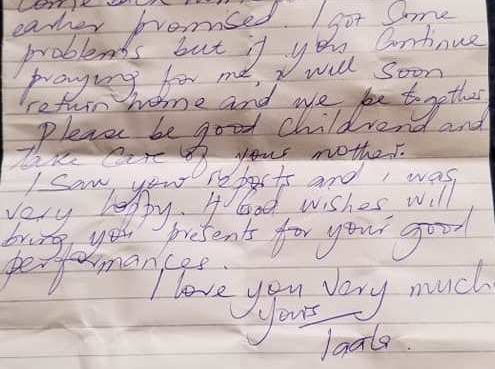 come back
earlier promised. I got Some
problems but if you Continue
praying for me, I will Soon
return home and we be together
Please be good Childrend and
take care of your mother.
I saw your reports and i was
very happy. If God wishes will
bring you presents for your good
performances.
I love you very much
yours